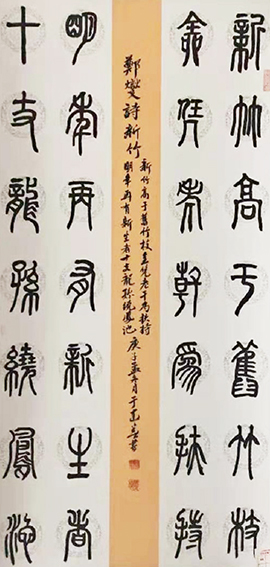 新竹高于舊竹枝
全凭老幹為扶持
鄭燮詩新竹
新竹高于舊竹枝全凭老干為扶持
明年再有新生者十丈龍孫繞鳳池 庚子
明年再有新生者
十丈龍孫繞鳳池